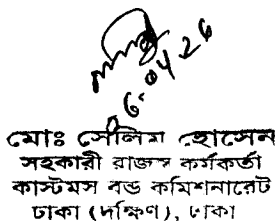 ০৬.০৪.২৬
মোঃ সেলিম হোসেন
সহকারী রাজস্ব কর্মকর্তা
কাস্টমস বন্ড কমিশনারেট
ঢাকা (দক্ষিণ), ঢাকা